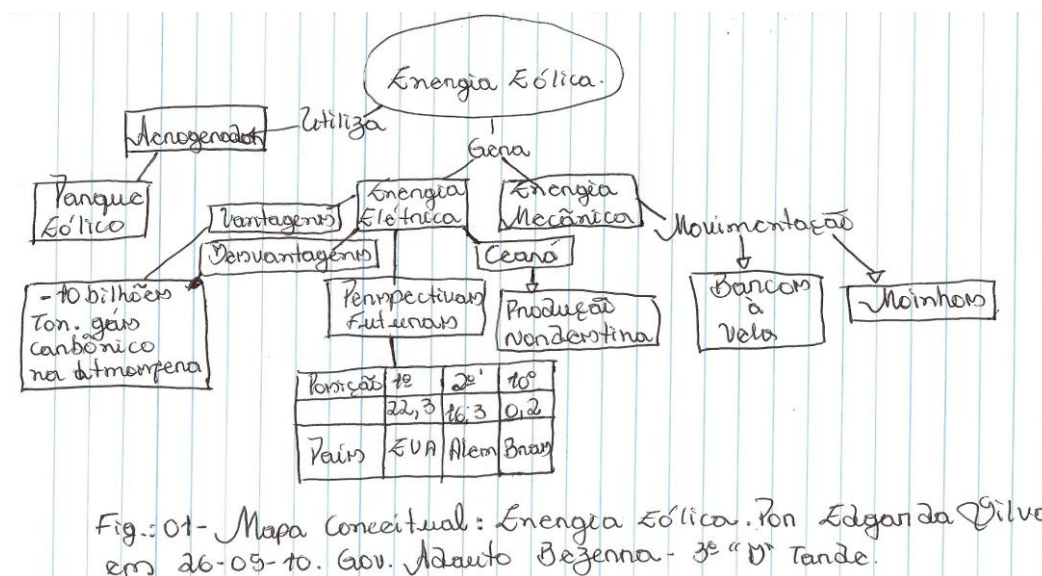 Energia Eólica.
Utiliza
Aerogerador
Gera
Parque
Eólico
Energia
Elétrica
Energia
Mecânica
Vantagens
Desvantagens
Ceará
Movimentação
- 10 bilhões
Ton. gás
carbônico
na atmosfera
Perspectivas
Futuras
Produção
nordestina
Barcos
à
Vela
Moinhos
Posição 1º 2º 10º
22,3 16,3 0,2
País EUA Alem Bras
Fig.: 01 - Mapa Conceitual: Energia Eólica. Por Edgar da Silva
em 26-05-10. Gov. Adauto Bezerra - 3º "D" Tarde.